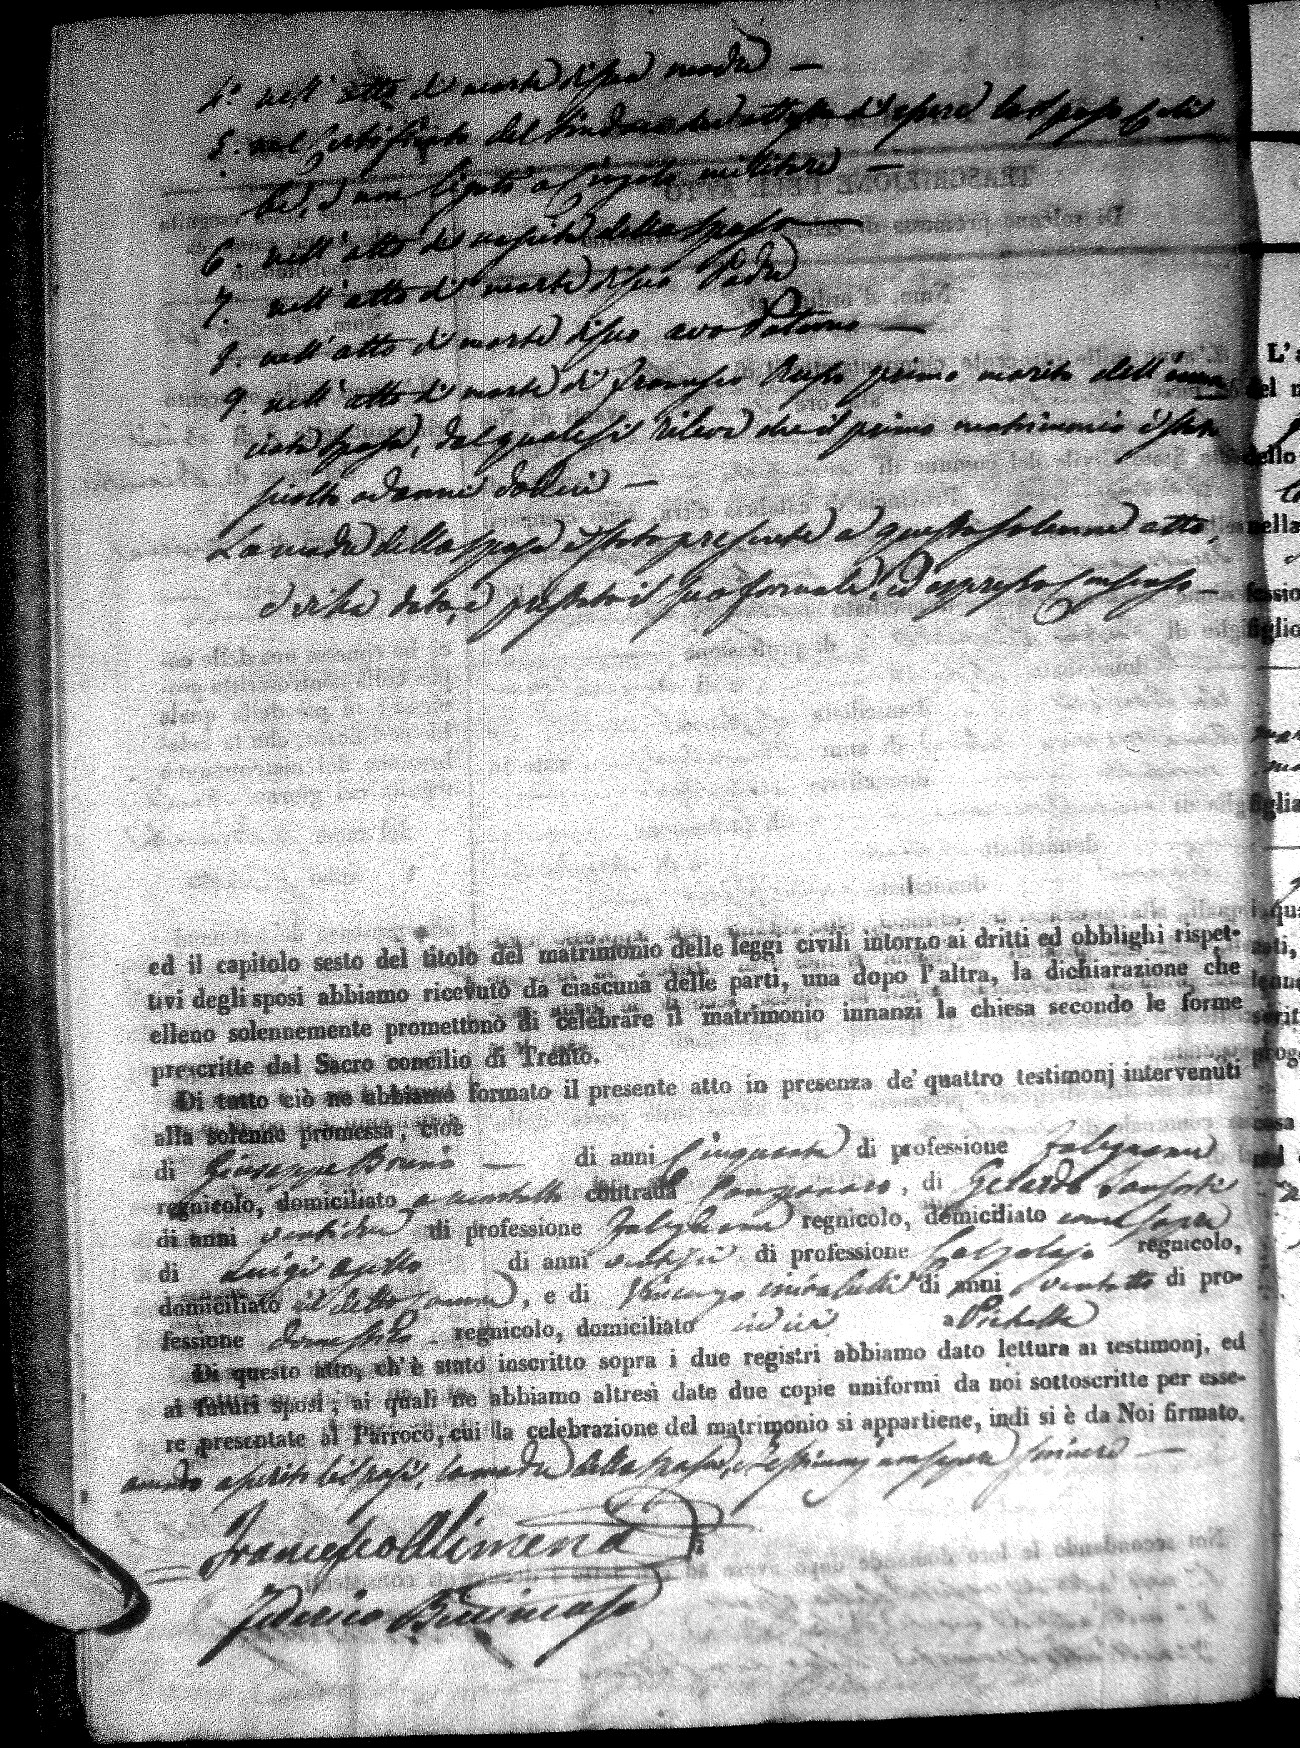 4.º nell'atto di morte di sua madre —
5. nel Certificato del Sindaco che attesta d'essere lo sposo Celi
be, e non ligato a Congedo militare —
6. nell'atto di nascita della sposa —
7. nell'atto di morte di suo Padre
8. nell'atto di morte di suo avo Paterno —
9. nell'atto di morte di Francesco Russo primo marito dell'annun
ciata sposa, dal quale si rileva che il primo matrimonio è stato
sciolto —
La madre della sposa è stata presente a questo solenne atto,
e vi ha dato, e prestato il suo formale, ed espresso Consenso —
ed il capitolo sesto del titolo del matrimonio delle leggi civili intorno ai dritti ed obblighi rispet-
tivi degli sposi abbiamo ricevuto da ciascuna delle parti, una dopo l'altra, la dichiarazione che
elleno solennemente promettono di celebrare il matrimonio innanzi la chiesa secondo le forme
prescritte dal Sacro concilio di Trento.
Di tutto ciò ne abbiamo formato il presente atto in presenza de' quattro testimonj intervenuti
alla solenne promessa, cioè
di Giuseppe Bruno — di anni Cinquanta di professione Falegname
regnicolo, domiciliato contrada , di Gerardo
di anni di professione Falegname regnicolo, domiciliato come sopra
di Luigi di anni di professione Calzolajo regnicolo,
domiciliato in detto Comune, e di Vincenzo di anni ventotto di pro-
fessione domestico regnicolo, domiciliato
Di questo atto, ch'è stato inscritto sopra i due registri abbiamo dato lettura ai testimonj, ed
ai futuri sposi, ai quali ne abbiamo altresì date due copie uniformi da noi sottoscritte per esse-
re presentate al Parroco, cui la celebrazione del matrimonio si appartiene, indi si è da Noi firmato.
avendo asserito li sposi, la madre della sposa, e testimonj non saper scrivere —
Francesco Alimena
Federico